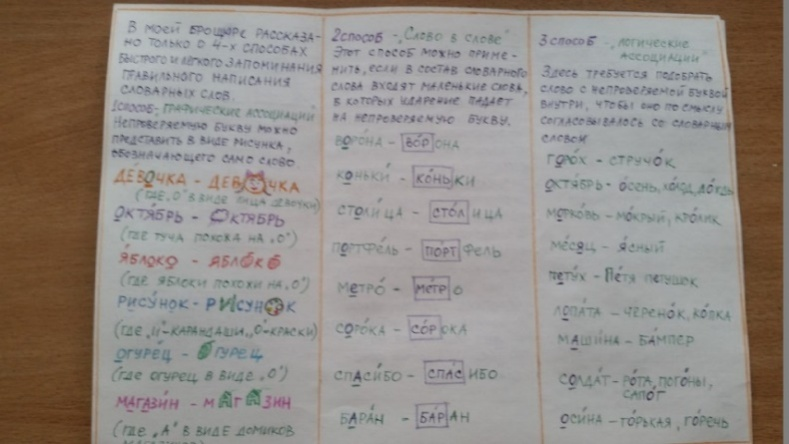 В МОЕЙ БРОШЮРЕ РАССКАЗА-
НО ТОЛЬКО О 4-Х СПОСОБАХ
БЫСТРОГО И ЛЁГКОГО ЗАПОМИНАНИЯ
ПРАВИЛЬНОГО НАПИСАНИЯ
СЛОВАРНЫХ СЛОВ.
1 СПОСОБ - „ГРАФИЧЕСКИЕ АССОЦИАЦИИ
НЕПРОВЕРЯЕМУЮ БУКВУ МОЖНО
ПРЕДСТАВИТЬ В ВИДЕ РИСУНКА,
ОБОЗНАЧАЮЩЕГО САМО СЛОВО
ДЕ́ВОЧКА - ДЕВОЧКА
(ГДЕ „О" В ВИДЕ ЛИЦА ДЕВОЧКИ)
ОКТЯ́БРЬ - ОКТЯБРЬ
(ГДЕ ТУЧА ПОХОЖА НА „О")
Я́БЛОКО - ЯБЛОКО
(ГДЕ ЯБЛОКИ ПОХОЖИ НА „О")
РИСУ́НОК - РИСУНОК
(ГДЕ „И"-КАРАНДАШИ, „О"-КРАСКИ)
ОГУРЕ́Ц - ОГУРЕЦ
(ГДЕ ОГУРЕЦ В ВИДЕ „О")
МАГАЗИ́Н - МАГАЗИН
(ГДЕ „А" В ВИДЕ ДОМИКОВ
2 СПОСОБ - „Слово в слове"
ЭТОТ СПОСОБ МОЖНО ПРИМЕ-
НИТЬ, ЕСЛИ В СОСТАВ СЛОВАРНОГО
СЛОВА ВХОДЯТ МАЛЕНЬКИЕ СЛОВА,
В КОТОРЫХ УДАРЕНИЕ ПАДАЕТ
НА НЕПРОВЕРЯЕМУЮ БУКВУ.
ВОРО́НА - ВО́РОНА
КОНЬКИ́ - КО́НЬКИ
СТОЛИ́ЦА - СТО́ЛИЦА
ПОРТФЕ́ЛЬ - ПО́РТФЕЛЬ
МЕТРО́ - МЕ́ТРО
СОРО́КА - СО́РОКА
СПАСИ́БО - СПА́СИБО
БАРА́Н - БА́РАН
3 СПОСОБ - „ЛОГИЧЕСКИЕ
АССОЦИАЦИИ"
ЗДЕСЬ ТРЕБУЕТСЯ ПОДОБРАТЬ
СЛОВО С НЕПРОВЕРЯЕМОЙ БУКВОЙ
ВНУТРИ, ЧТОБЫ ОНО ПО СМЫСЛУ
СОГЛАСОВЫВАЛОСЬ СО СЛОВАРНЫМ
СЛОВОМ
ГОРО́Х - СТРУЧО́К
ОКТЯ́БРЬ - О́СЕНЬ, ХО́ЛОД, ДО́ЖДЬ
МОРКО́ВЬ - МО́КРЫЙ, КРО́ЛИК
МЕ́СЯЦ - Я́СНЫЙ
ПЕТУ́Х - ПЕ́ТЯ ПЕТУШОК
ЛОПА́ТА - ЧЕРЕНО́К, КО́ПКА
МАШИ́НА - БА́МПЕР
СОЛДА́Т - РО́ТА, ПОГО́НЫ,
САПО́Г
ОСИ́НА - ГО́РЬКАЯ, ГО́РЕЧЬ